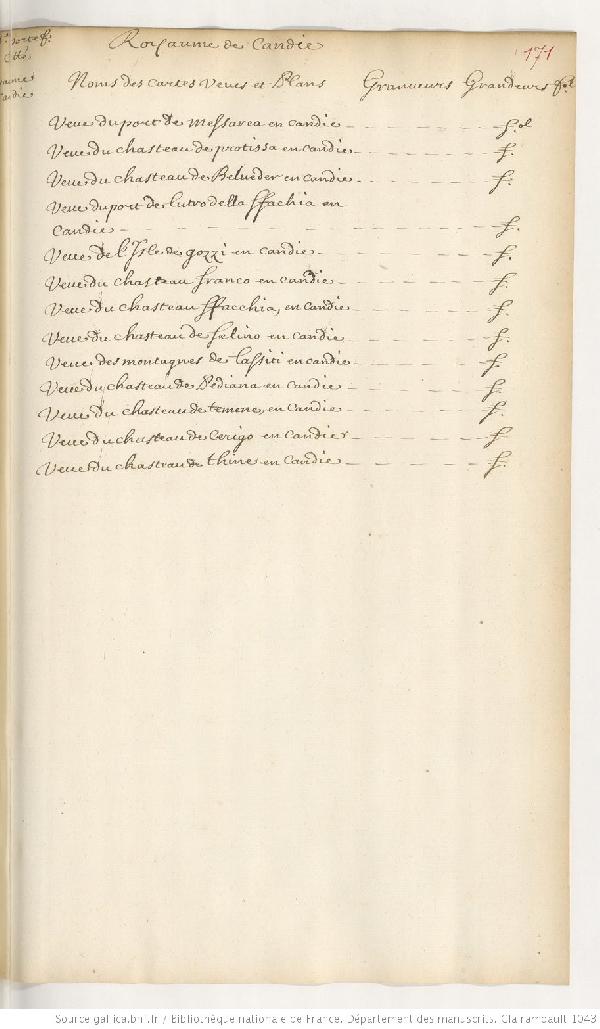 Royaume de Candie
171
Noms des cartes Veues et Plans Graveurs Grandeurs fol
Veue du port de Messarea en candie f.ol
Veue du chasteau de protissa en candie f.
Veue du chasteau de Belueder en candie f.
Veue du port de lutro della Sfachia en
candie f.
Veue de l'Isle de gozzi en candie f.
Veue du chasteau franco en candie f.
Veue du chasteau Sfacchia, en candie f.
Veue du chasteau de selino en candie f.
Veue des montagnes de Lassiti en candie f.
Veue du chasteau de Bediana en candie f.
Veue du chasteau de temene, en candie f.
Veue du chasteau de Cerigo en candie f.
Veue du chasteau de thine en candie f.
Source gallica.bnf.fr / Bibliothèque nationale de France. Département des manuscrits. Clairambault 1043